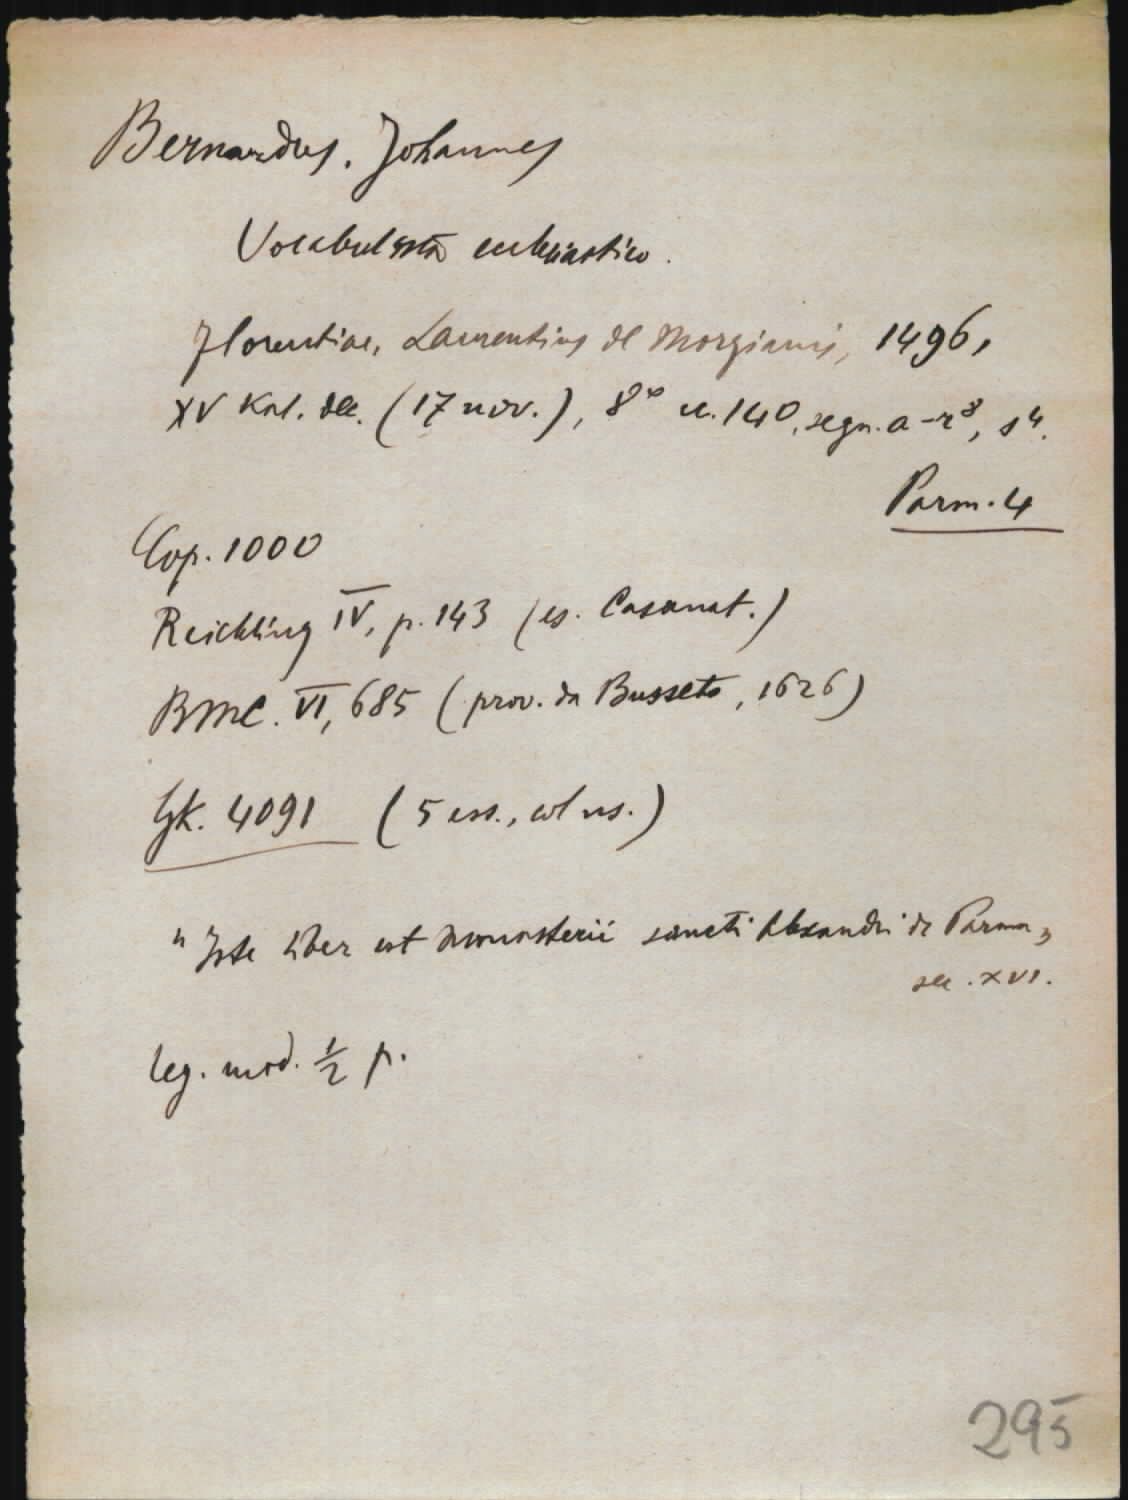 Bernardus, Johannes
Vocabulista ecclesiastico.
Florentiae, Laurentius de Morgianis, 1496,
XV Kal. dec. (17 nov.), 8° cc. 140, segn. a-r⁸, s⁴.
Parm. 4
Cop. 1000
Reichling IV, p. 143 (es. Casanat.)
BMC. VI, 685 (prov. da Busseto, 1626)
GK. 4091 (5 ess., col ns.)
"Iste liber est monasterii sancti Alexandri de Parma"
sec. XVI.
leg. mod. ½ p.
295